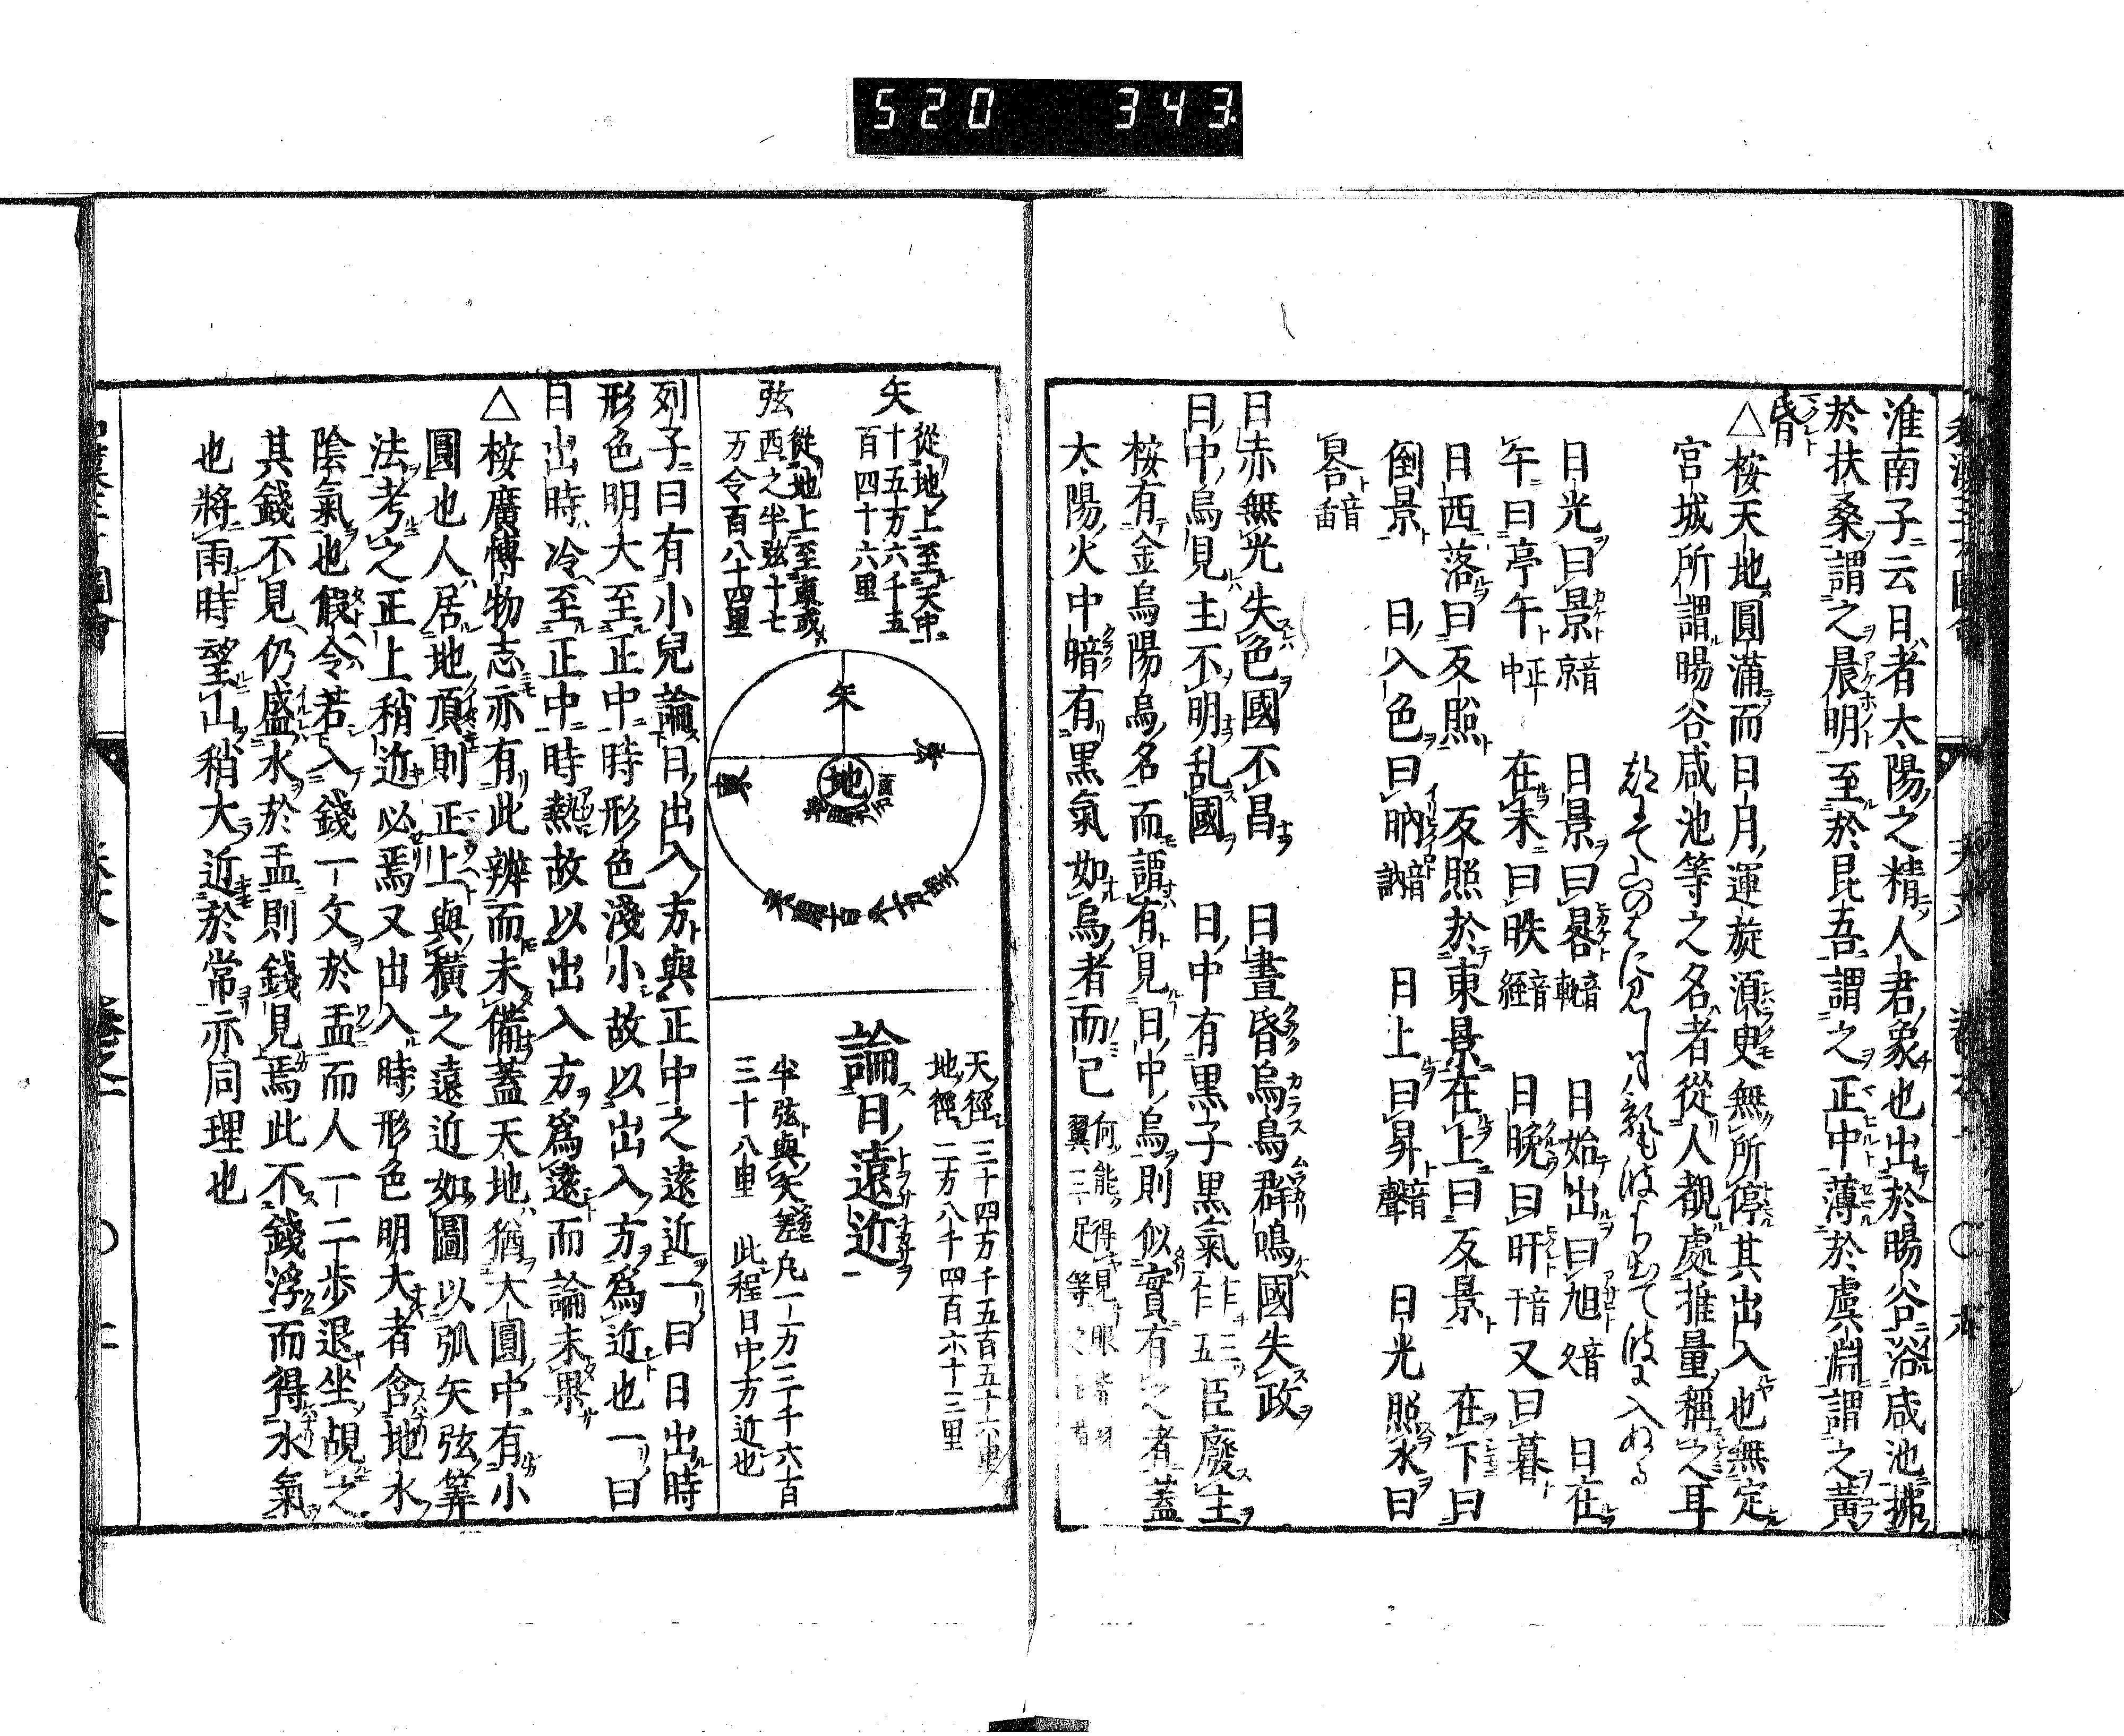 520 343
淮南子云日者太陽之精人君象也出於暘谷浴咸池拂
於扶桑謂之晨明至於昆吾謂之正中薄於虞淵謂之黃
昏
△桉天地圓滿而日月運旋須臾無所停其出入也無定
宮城所謂暘谷咸池等之名者從人觀處推量稱之耳
日光曰景音京 日景曰晷音軌 日始出曰旭音 日在
午曰亭午正中 在未曰昳音經 日晚曰旰音干又曰暮
日西落曰反照 反照於東景在上曰反景 在下曰
倒景 日入色曰昒音訥 日上曰昇音聲 日光照水曰
音
日赤無光失色國不昌 日晝昏烏鳥群鳴國失政
日中烏見主不明乱國 日中有黒子黒氣乍三乍五臣廢主
桉有金烏陽烏名而謂有見日中烏則似實有之者蓋
太陽火中暗有黒氣如烏者而已何能得見眼
翼三足等之
矢 從地上至天中
十五万六千五
百四十六里
弦 從地上至東或
西之半弦十七
万令百八十四里
矢
地
東
天徑三十四万千五百五十六里
地徑二万八千四百六十三里
論日遠近
半弦與矢差凡一万三千六百
三十八里 此程日中方近也
列子曰有小兒論日出入方與正中之遠近一曰日出時
形色明大至正中時形色淺小故以出入方爲近也一曰
日出時冷至正中時熱故以出入方爲遠而論未果
△桉廣博物志亦有此辨而未備蓋天地猶大圓中有小
圓也人居地頂則正上與橫之遠近如圖以弧矢弦筭
法考之正上稍近必焉又出入時形色明大者含地水
陰氣也假令若入錢一文於盂而人一二步退坐覘之
其錢不見仍盛水於盂則錢見焉此不錢浮而得水氣
也將雨時望山稍大近於常亦同理也